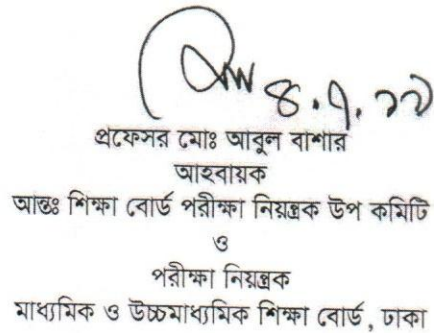 ৪.৭.২২
প্রফেসর মোঃ আবুল বাশার
আহবায়ক
আন্তঃ শিক্ষা বোর্ড পরীক্ষা নিয়ন্ত্রক উপ কমিটি
ও
পরীক্ষা নিয়ন্ত্রক
মাধ্যমিক ও উচ্চমাধ্যমিক শিক্ষা বোর্ড, ঢাকা